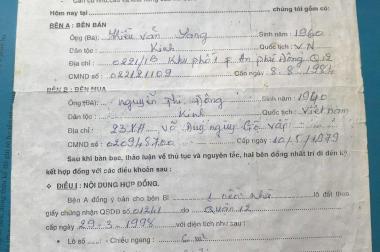 Hôm nay tại ......, chúng tôi gồm có:
BÊN A : BÊN BÁN
Ông (Bà): Thiều Văn Sang Sinh năm : 1960
Dân tộc : Kinh Quốc tịch : V.N
Địa chỉ : 0221/1B Khu phố 1 p. An phú Đông Q12
CMND số : 022121109 Cấp ngày 8.8.1984
BÊN B : BÊN MUA
Ông (Bà): nguyễn thị Đông Sinh năm : 1940
Dân tộc : Kinh Quốc tịch : Việt nam
Địa chỉ : 23 Võ Duy Gò vấp
CMND số : 020945700 Cấp ngày 10/5/1979
Sau khi bàn bạc, thảo luận về thủ tục và nguyên tắc, hai bên đồng nhất trí đi đến ký
kết hợp đồng với các điều khoản sau :
ĐIỀU I : NỘI DUNG HỢP ĐỒNG.
Bên A đồng ý bán cho bên B 1 nền nhà lô đất theo
giấy chứng nhận QSDĐ số 01241 do Quận 12
cấp ngày 29-3-1998 với diện tích như sau :
Lô số Chiều ngang : 6 m